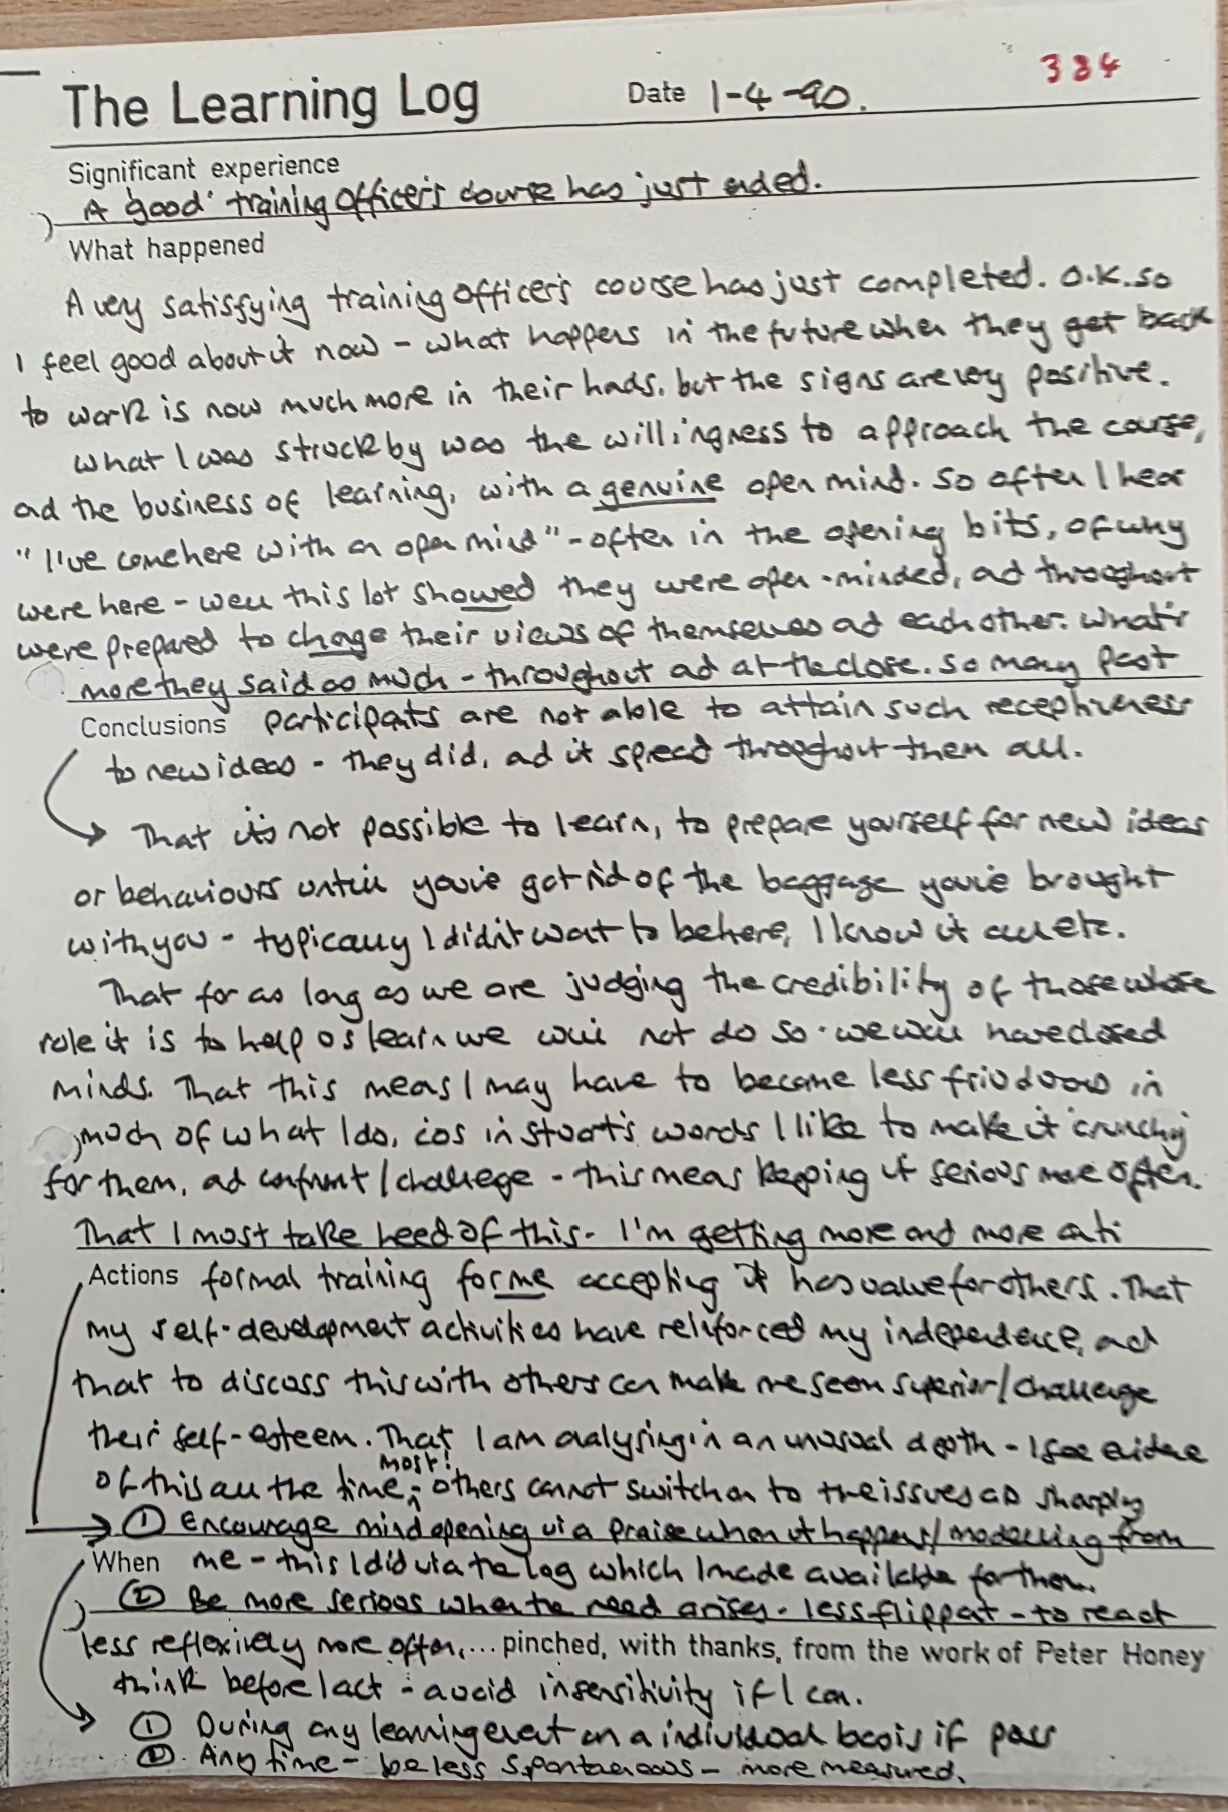 384
The Learning Log Date 1-4-90.
Significant experience
A 'good' training officer's course has just ended.
What happened
A very satisfying training officer's course has just completed. O.K. so
I feel good about it now - what happens in the future when they get back
to work is now much more in their hads, but the signs are very positive.
What I was struck by was the willingness to approach the course,
ad the business of learning, with a genuine open mind. So often I hear
"I've come here with an open mind" - often in the opening bits, of why
were here - well this lot showed they were open-minded, ad throughout
were prepared to change their views of themselves ad each other. What's
more they said as much - throughout ad at the close. So many past
Conclusions participants are not able to attain such receptiveness
to new ideas - they did, ad it spread throughout them all.
That it's not possible to learn, to prepare yourself for new ideas
or behaviours until you've got rid of the baggage you've brought
with you - typically I didn't want to be here, I know it all etc.
That for as long as we are judging the credibility of those whose
role it is to help us learn we will not do so - we will have closed
minds. That this means I may have to become less frivolous in
much of what I do, cos in Stuart's words I like to make it 'crunchy'
for them, ad confront/challenge - this means keeping it serious more often.
That I must take heed of this - I'm getting more and more anti
Actions formal training for me accepting it has value for others. That
my self-development activities have reinforced my independence, and
that to discuss this with others can make me seem superior/challenge
their self-esteem. That I am analysing in an unusual depth - I see evidence
most!
of this all the time - others cannot switch on to the issues as sharply
① Encourage mind opening via praise when it happens/modelling from
When me - this I did via the log which I made available for them.
② Be more serious when the need arises - less flippant - to react
less reflexively more often, ... pinched, with thanks, from the work of Peter Honey
think before I act - avoid insensitivity if I can.
① During any learning event on a individual basis if poss
②. Any time - be less spontaneous - more measured.